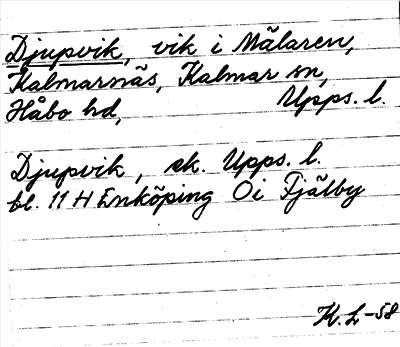 Djupvik, vik i Mälaren,
Kalmarnäs, Kalmar sn,
Håbo hd, Upps. l.
Djupvik, ek. Upps. l.
bl. 11 H Enköping Öi Fjälby
K.L-58